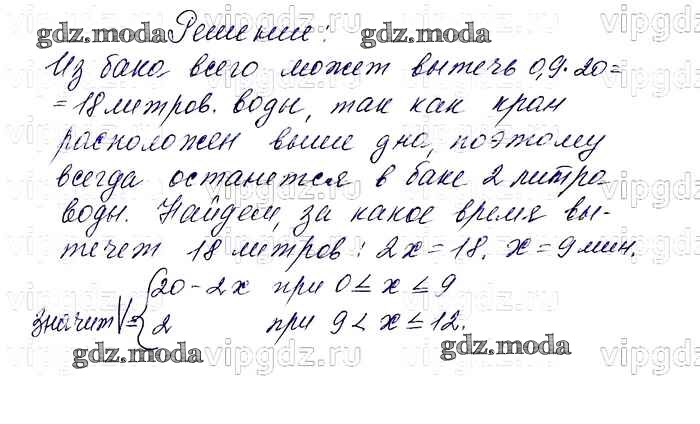 Решение:
Из бака всего может вытечь 0,9·20=
=18 литров. воды, так как кран
расположен выше дна, поэтому
всегда останется в баке 2 литра
воды. Найдем, за какое время вы-
течет 18 литров: 2x=18. x=9 мин.
значит V={20-2x при 0≤x≤9
2 при 9<x≤12.
gdz.moda
gdz.moda
gdz.moda
gdz.moda
vipgdz.ru
vipgdz.ru
vipgdz.ru
vipgdz.ru